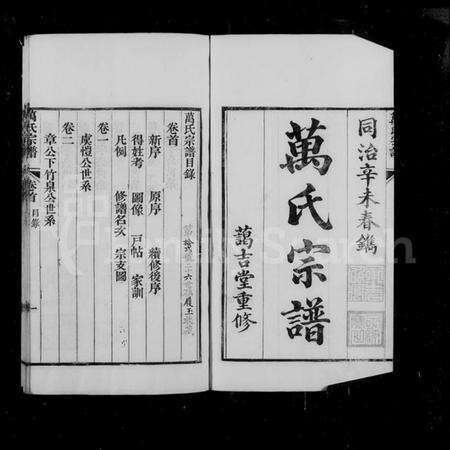 同治辛未春鐫
萬氏宗譜
藹吉堂重修
萬氏宗譜目錄
卷首
新序 原序 續修後序
得姓考 圖像 戸帖 家訓
凡例 修譜名次 宗支圖
卷一
虞愷公世系
卷二
章公下竹泉公世系
萬氏宗譜 卷首 目錄 一